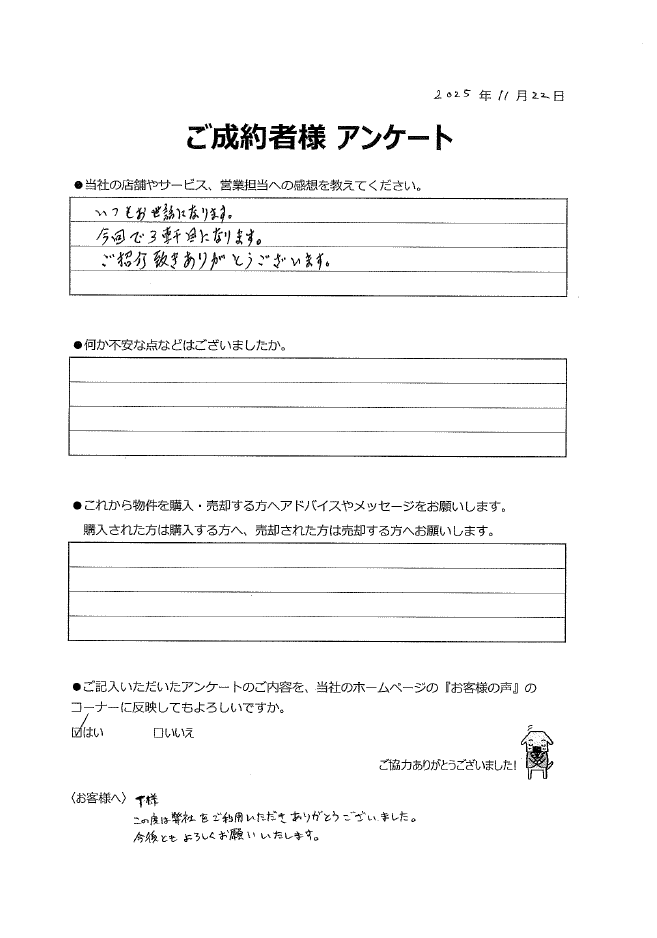 2025年11月22日
ご成約者様 アンケート
●当社の店舗やサービス、営業担当への感想を教えてください。
いつもお世話になります。
今回で3軒目になります。
ご紹介頂きありがとうございます。
●何か不安な点などはございましたか。
●これから物件を購入・売却する方へアドバイスやメッセージをお願いします。
購入された方は購入する方へ、売却された方は売却する方へお願いします。
●ご記入いただいたアンケートのご内容を、当社のホームページの『お客様の声』の
コーナーに反映してもよろしいですか。
☑はい □いいえ
ご協力ありがとうございました！
〈お客様へ〉 T様
この度は弊社をご利用いただきありがとうございました。
今後ともよろしくお願いいたします。